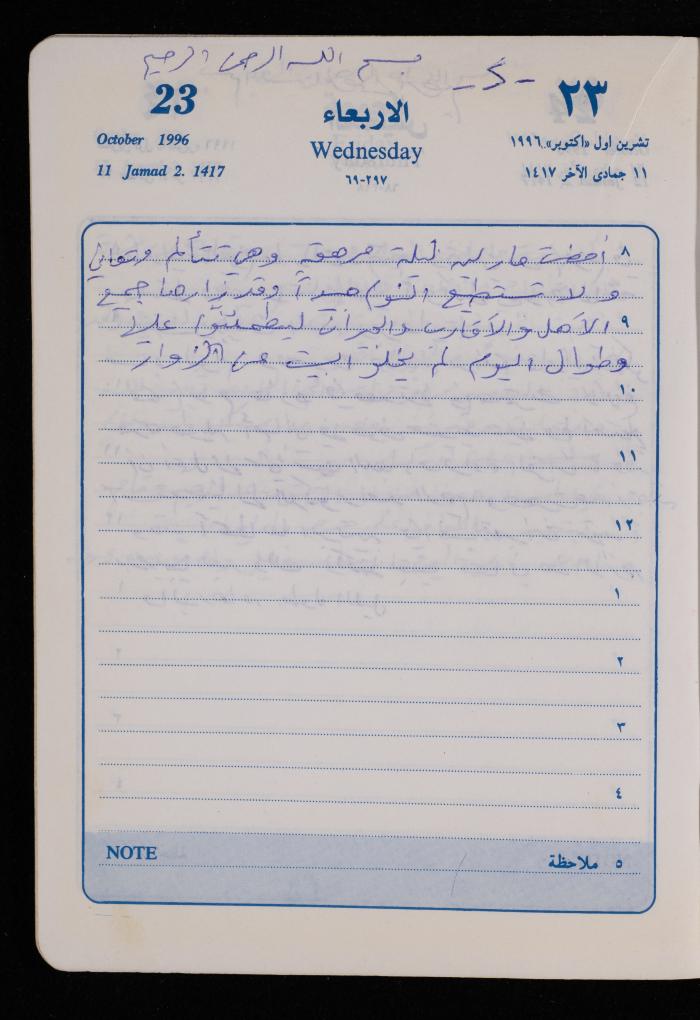 بسم الله الرحمن الرحيم
23
الاربعاء
٢٣
October 1996
Wednesday
تشرين اول «اكتوبر» ١٩٩٦
11 Jamad 2. 1417
٦٩-٢٩٧
١١ جمادى الآخر ١٤١٧
٨ أمضت مارلين ليلة مرهقة وهي تتألم وتعاني
ولا تستطيع النوم جيداً وقد زارها جميع
٩ الأهل والأقارب والجيران ليطمئنوا عليها
وطوال اليوم لم يخلو البيت من الزوار
١٠
١١
١٢
١
٢
٣
٤
NOTE
٥ ملاحظة